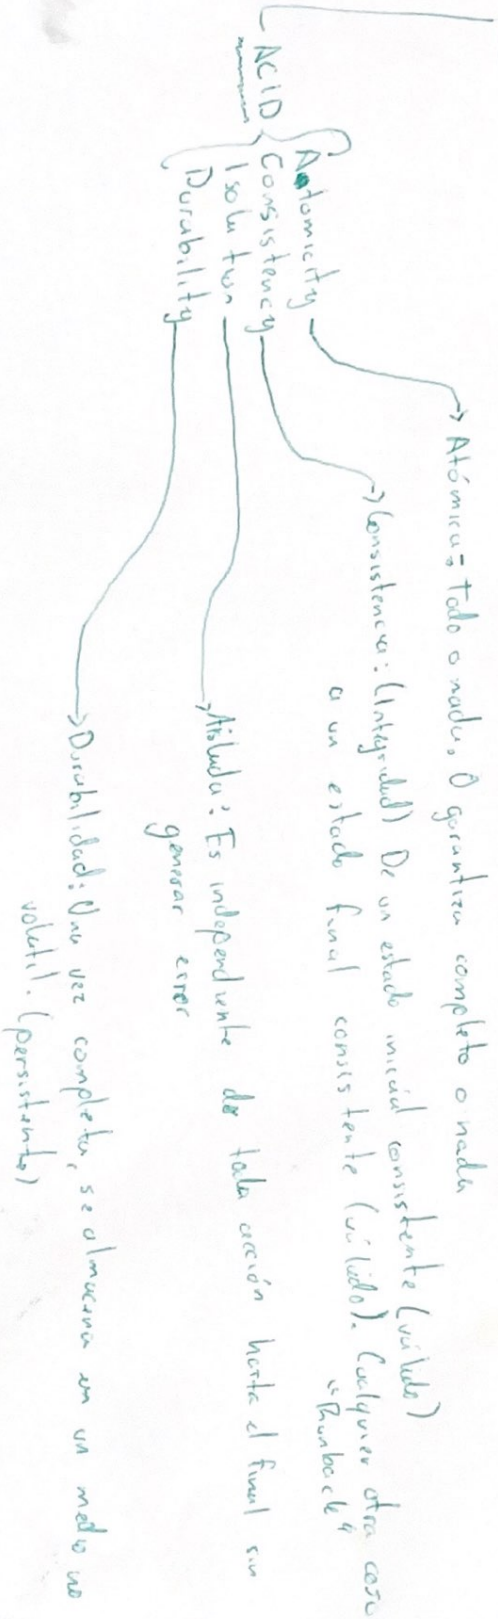 - ACID
Atomicity
Consistency
Isolation
Durability
→ Atómica: todo o nada, O garantiza completo o nada
→ Consistencia: (Integridad) De un estado inicial consistente (válido)
a un estado final consistente (válido). Cualquier otra cosa
→ Aislada: Es independiente de toda acción hasta el final sin
generar error
→ Durabilidad: Una vez completa, se almacena en un medio no
volátil. (persistente)